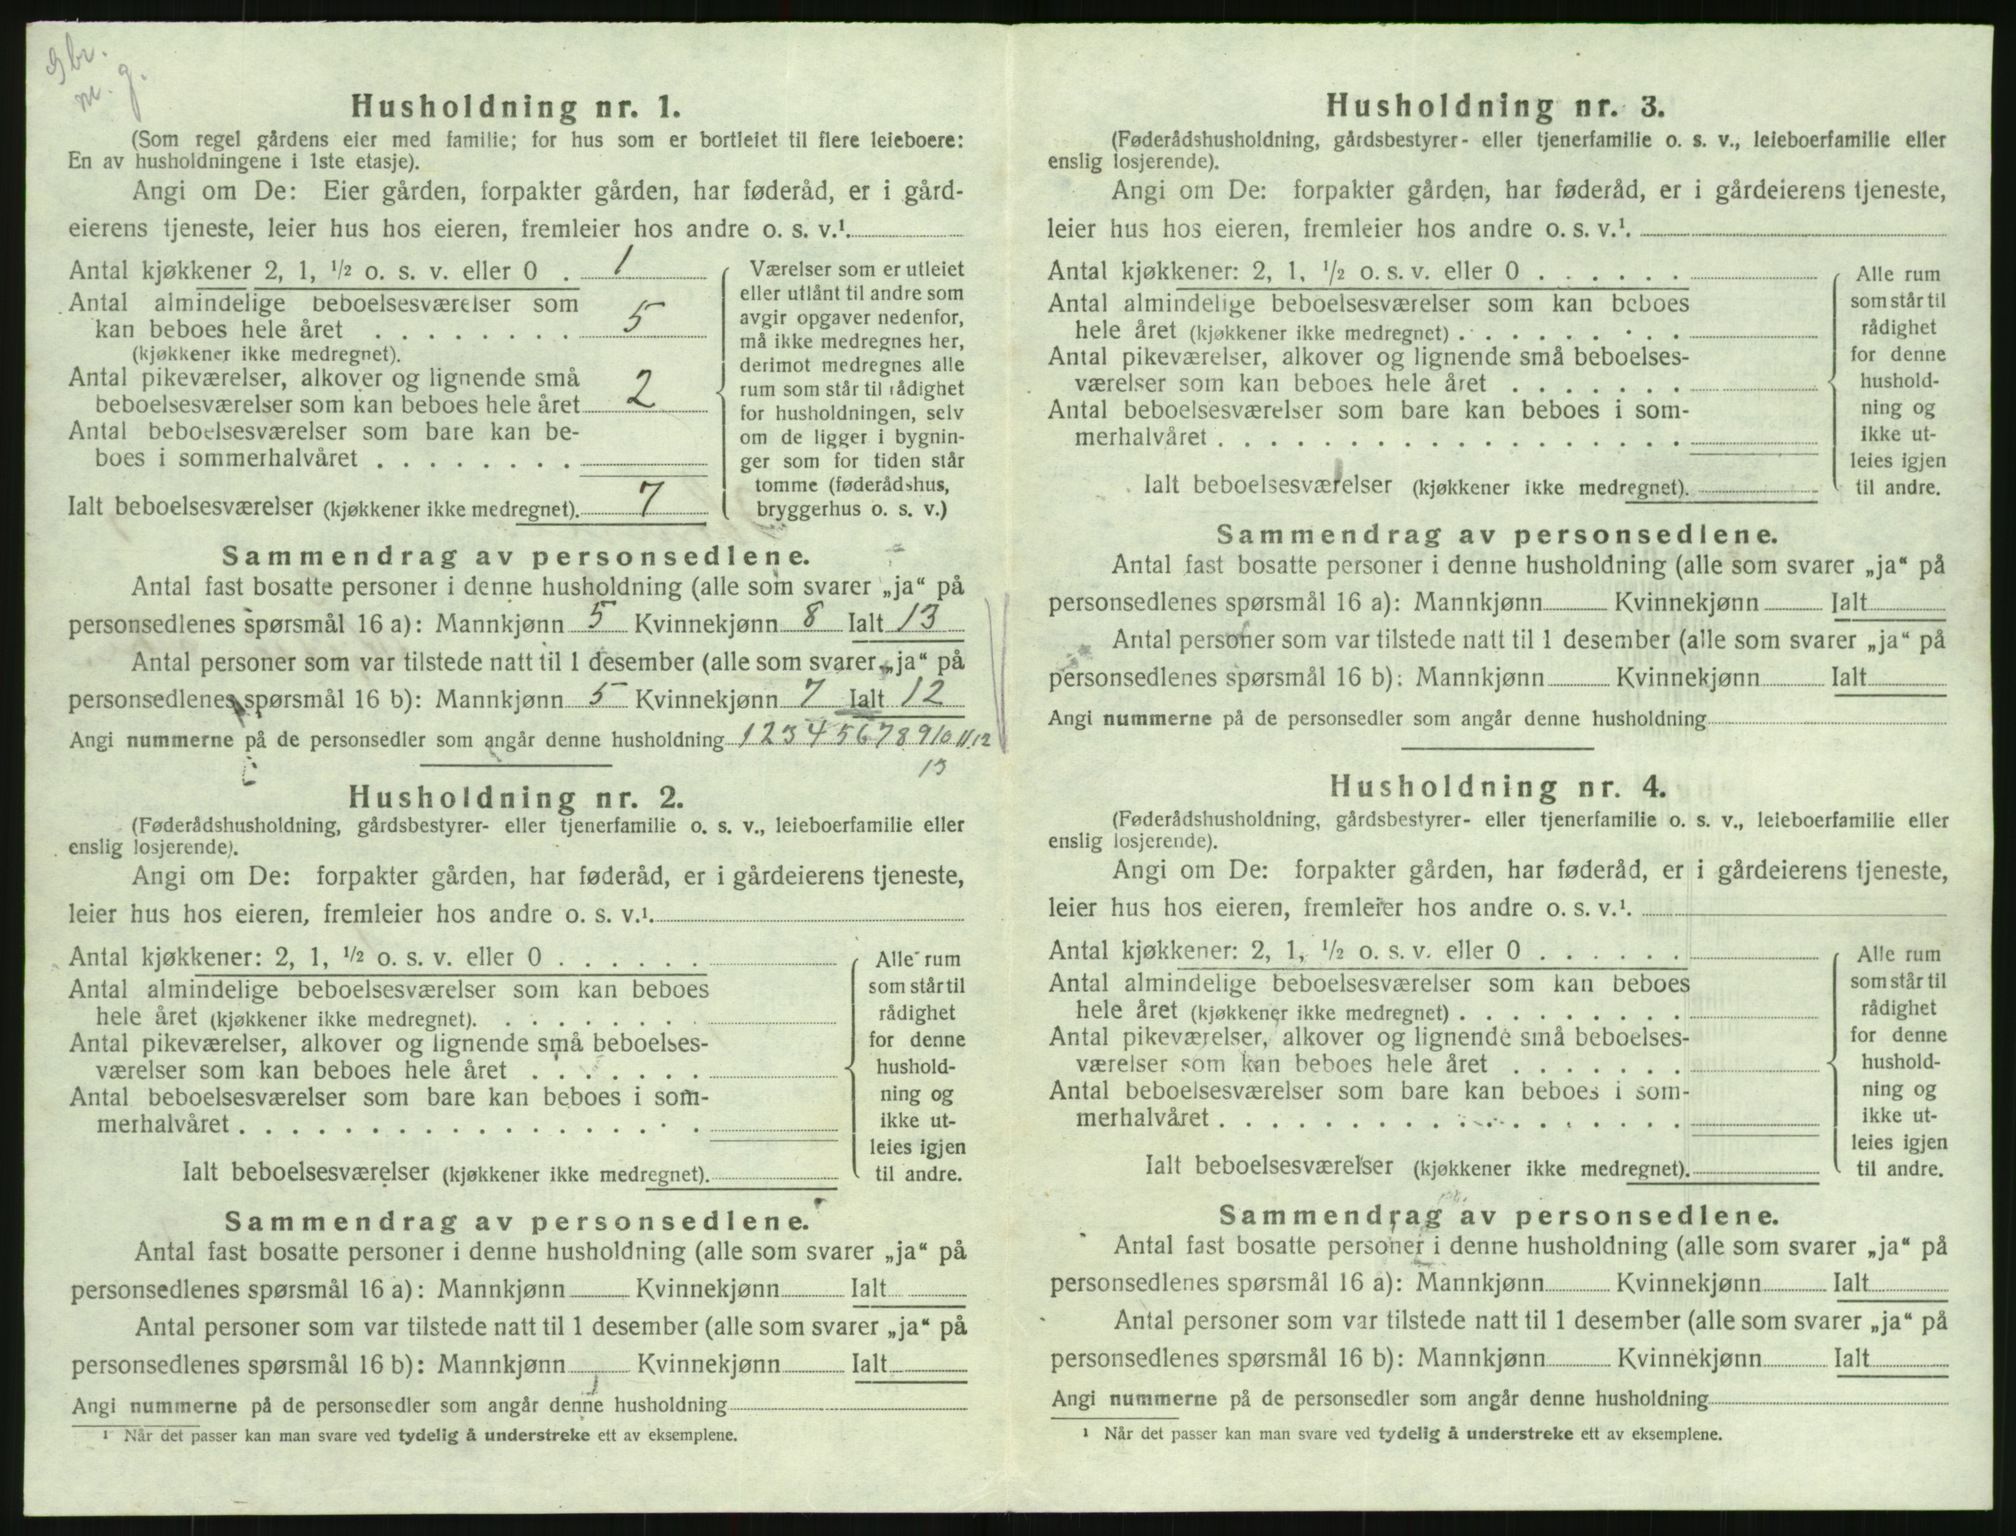 gbr.
m. g.
Husholdning nr. 1.
(Som regel gårdens eier med familie; for hus som er bortleiet til flere leieboere:
En av husholdningene i 1ste etasje).
Angi om De: Eier gården, forpakter gården, har føderåd, er i gård-
eierens tjeneste, leier hus hos eieren, fremleier hos andre o. s. v.¹
Antal kjøkkener 2, 1, ½ o. s. v. eller 0 . 1
Antal almindelige beboelsesværelser som
kan beboes hele året . . . . . . . . 5
(kjøkkener ikke medregnet).
Antal pikeværelser, alkover og lignende små
beboelsesværelser som kan beboes hele året 2
Antal beboelsesværelser som bare kan be-
boes i sommerhalvåret . . . . . . . .
Ialt beboelsesværelser (kjøkkener ikke medregnet). 7
Værelser som er utleiet
eller utlånt til andre som
avgir opgaver nedenfor,
må ikke medregnes her,
derimot medregnes alle
rum som står til rådighet
for husholdningen, selv
om de ligger i bygnin-
ger som for tiden står
tomme (føderådshus,
bryggerhus o. s. v.)
Sammendrag av personsedlene.
Antal fast bosatte personer i denne husholdning (alle som svarer „ja“ på
personsedlenes spørsmål 16 a): Mannkjønn 5 Kvinnekjønn 8 Ialt 13
Antal personer som var tilstede natt til 1 desember (alle som svarer „ja“ på
personsedlenes spørsmål 16 b): Mannkjønn 5 Kvinnekjønn 7 Ialt 12
Angi nummerne på de personsedler som angår denne husholdning 1 2 3 4 5 6 7 8 9 10 11 12
13
Husholdning nr. 2.
(Føderådshusholdning, gårdsbestyrer- eller tjenerfamilie o. s. v., leieboerfamilie eller
enslig losjerende).
Angi om De: forpakter gården, har føderåd, er i gårdeierens tjeneste,
leier hus hos eieren, fremleier hos andre o. s. v.¹
Antal kjøkkener: 2, 1, ½ o. s. v. eller 0 . . . . . .
Antal almindelige beboelsesværelser som kan beboes
hele året (kjøkkener ikke medregnet). . . . . . . . .
Antal pikeværelser, alkover og lignende små beboelses-
værelser som kan beboes hele året . . . . . . .
Antal beboelsesværelser som bare kan beboes i som-
merhalvåret . . . . . . . . . . . . . . . . . .
Ialt beboelsesværelser (kjøkkener ikke medregnet).
Alle rum
som står til
rådighet
for denne
hushold-
ning og
ikke ut-
leies igjen
til andre.
Sammendrag av personsedlene.
Antal fast bosatte personer i denne husholdning (alle som svarer „ja“ på
personsedlenes spørsmål 16 a): Mannkjønn Kvinnekjønn Ialt
Antal personer som var tilstede natt til 1 desember (alle som svarer „ja“ på
personsedlenes spørsmål 16 b): Mannkjønn Kvinnekjønn Ialt
Angi nummerne på de personsedler som angår denne husholdning
¹ Når det passer kan man svare ved tydelig å understreke ett av eksemplene.
Husholdning nr. 3.
(Føderådshusholdning, gårdsbestyrer- eller tjenerfamilie o. s. v., leieboerfamilie eller
enslig losjerende).
Angi om De: forpakter gården, har føderåd, er i gårdeierens tjeneste,
leier hus hos eieren, fremleier hos andre o. s. v.¹
Antal kjøkkener: 2, 1, ½ o. s. v. eller 0 . . . . . .
Antal almindelige beboelsesværelser som kan beboes
hele året (kjøkkener ikke medregnet) . . . . . . . . .
Antal pikeværelser, alkover og lignende små beboelses-
værelser som kan beboes hele året . . . . . . .
Antal beboelsesværelser som bare kan beboes i som-
merhalvåret . . . . . . . . . . . . . . . . . .
Ialt beboelsesværelser (kjøkkener ikke medregnet).
Alle rum
som står til
rådighet
for denne
hushold-
ning og
ikke ut-
leies igjen
til andre.
Sammendrag av personsedlene.
Antal fast bosatte personer i denne husholdning (alle som svarer „ja“ på
personsedlenes spørsmål 16 a): Mannkjønn Kvinnekjønn Ialt
Antal personer som var tilstede natt til 1 desember (alle som svarer „ja“ på
personsedlenes spørsmål 16 b): Mannkjønn Kvinnekjønn Ialt
Angi nummerne på de personsedler som angår denne husholdning
Husholdning nr. 4.
(Føderådshusholdning, gårdsbestyrer- eller tjenerfamilie o. s. v., leieboerfamilie eller
enslig losjerende).
Angi om De: forpakter gården, har føderåd, er i gårdeierens tjeneste,
leier hus hos eieren, fremleier hos andre o. s. v.¹
Antal kjøkkener: 2, 1, ½ o. s. v. eller 0 . . . . . .
Antal almindelige beboelsesværelser som kan beboes
hele året (kjøkkener ikke medregnet) . . . . . . . . .
Antal pikeværelser, alkover og lignende små beboelses-
værelser som kan beboes hele året . . . . . . .
Antal beboelsesværelser som bare kan beboes i som-
merhalvåret . . . . . . . . . . . . . . . . . .
Ialt beboelsesværelser (kjøkkener ikke medregnet).
Alle rum
som står til
rådighet
for denne
hushold-
ning og
ikke ut-
leies igjen
til andre.
Sammendrag av personsedlene.
Antal fast bosatte personer i denne husholdning (alle som svarer „ja“ på
personsedlenes spørsmål 16 a): Mannkjønn Kvinnekjønn Ialt
Antal personer som var tilstede natt til 1 desember (alle som svarer „ja“ på
personsedlenes spørsmål 16 b): Mannkjønn Kvinnekjønn Ialt
Angi nummerne på de personsedler som angår denne husholdning
¹ Når det passer kan man svare ved tydelig å understreke ett av eksemplene.